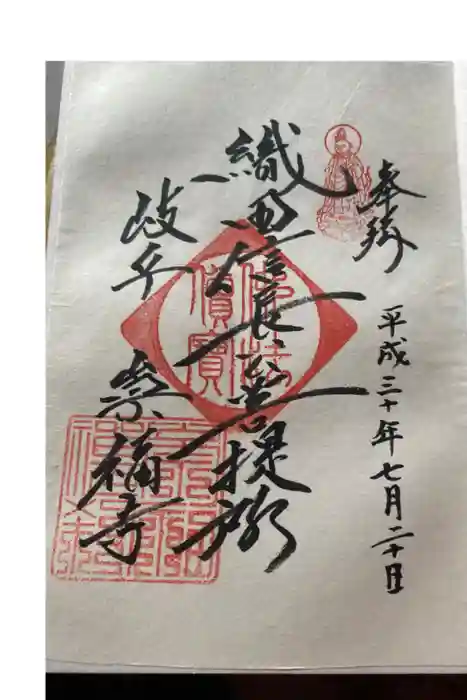 奉拝
平成三十年七月二十日
織田信長公菩提所
岐阜
崇福寺
佛法
僧寳